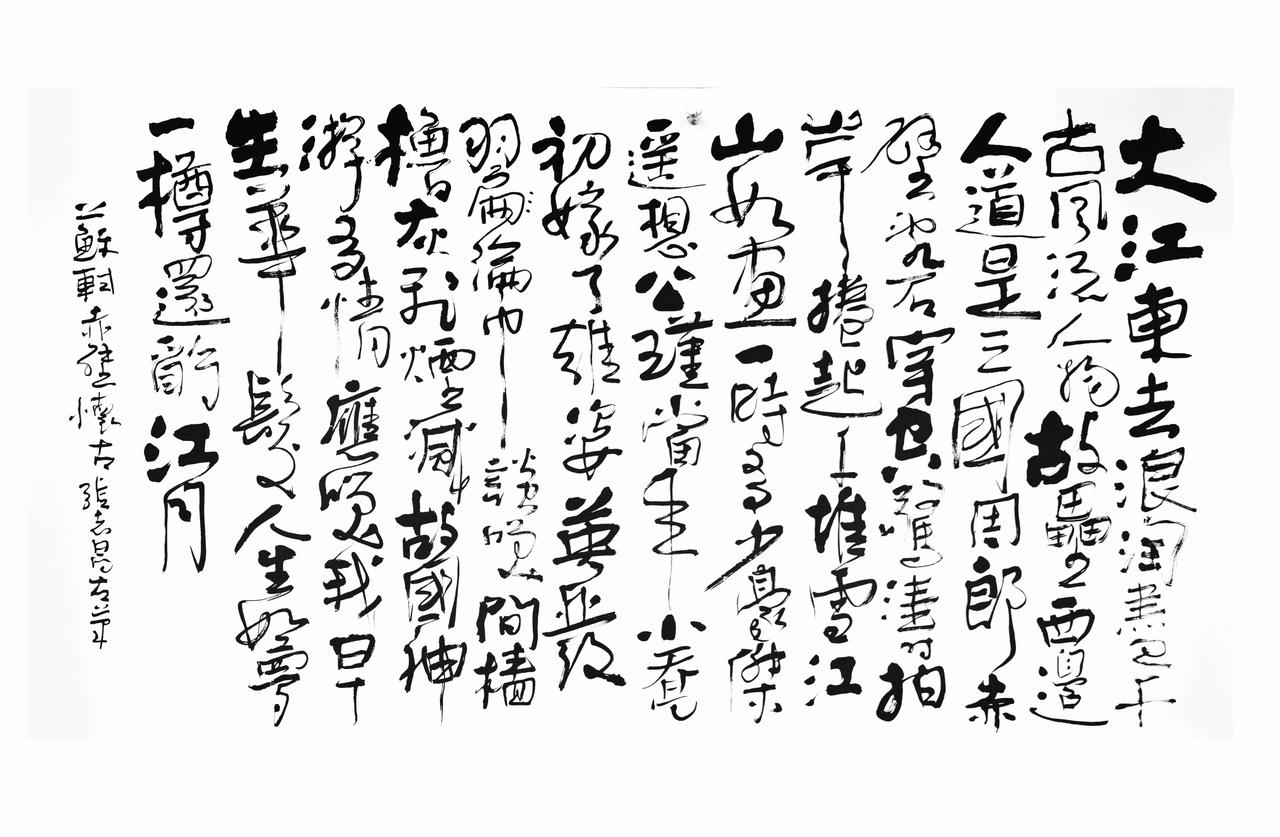 大江東去浪淘盡千
古風流人物故壘西邊
人道是三國周郎赤
壁亂石穿空驚濤拍
岸捲起千堆雪江
山如畫一時多少豪傑
遥想公瑾當年小喬
初嫁了雄姿英發
羽扇綸巾談笑間檣
櫓灰飛煙滅故國神
游多情應笑我早
生華髮人生如夢
一樽還酹江月
蘇軾赤壁懷古張志昌